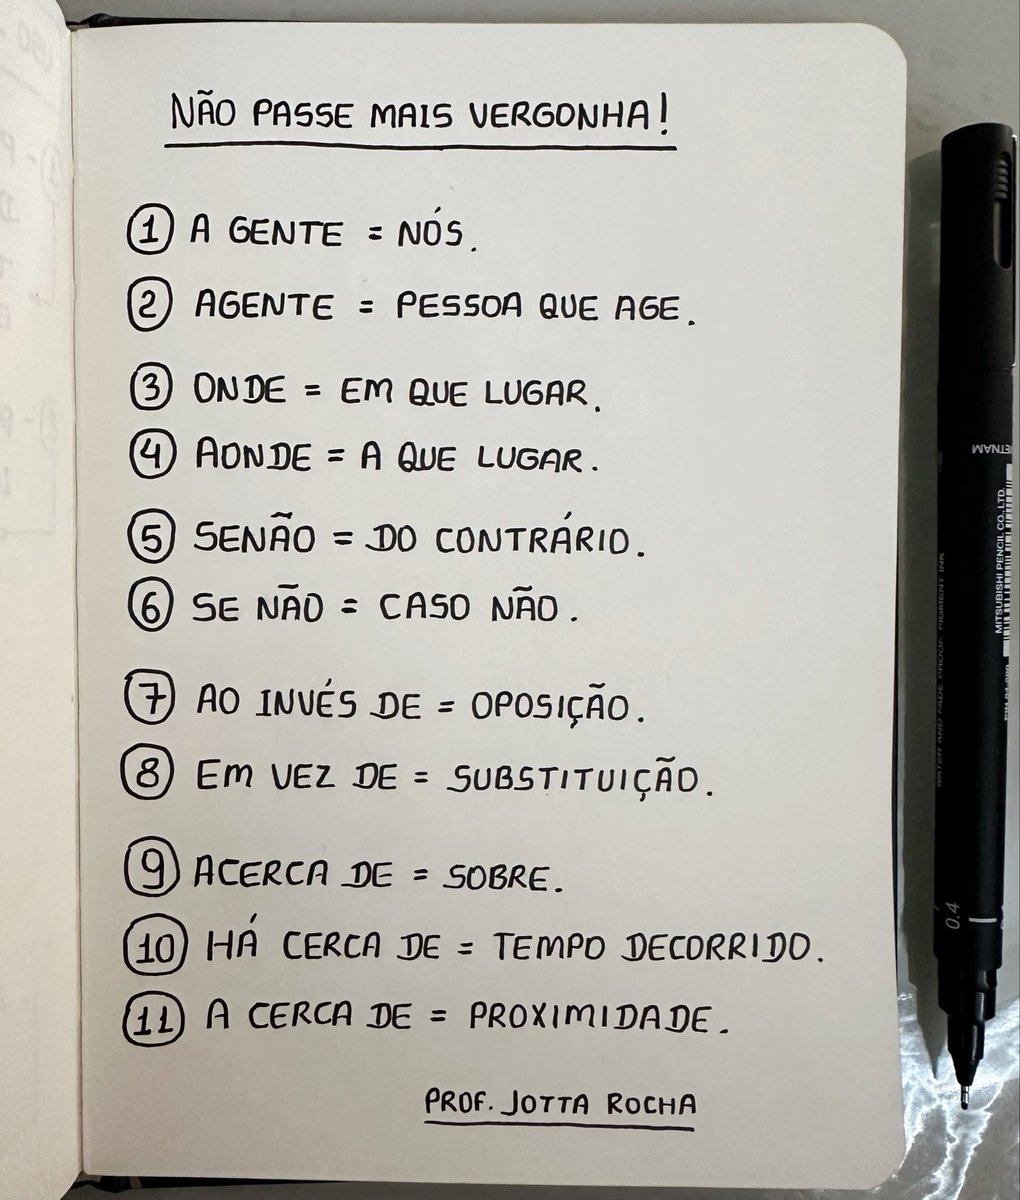 NÃO PASSE MAIS VERGONHA!
1 A GENTE = NÓS.
2 AGENTE = PESSOA QUE AGE.
3 ONDE = EM QUE LUGAR.
4 AONDE = A QUE LUGAR.
5 SENÃO = DO CONTRÁRIO.
6 SE NÃO = CASO NÃO.
7 AO INVÉS DE = OPOSIÇÃO.
8 EM VEZ DE = SUBSTITUIÇÃO.
9 ACERCA DE = SOBRE.
10 HÁ CERCA DE = TEMPO DECORRIDO.
11 A CERCA DE = PROXIMIDADE.
PROF. JOTTA ROCHA
MITSUBISHI PENCIL CO., LTD.
WATER AND FADE PROOF PIGMENT INK
0.4